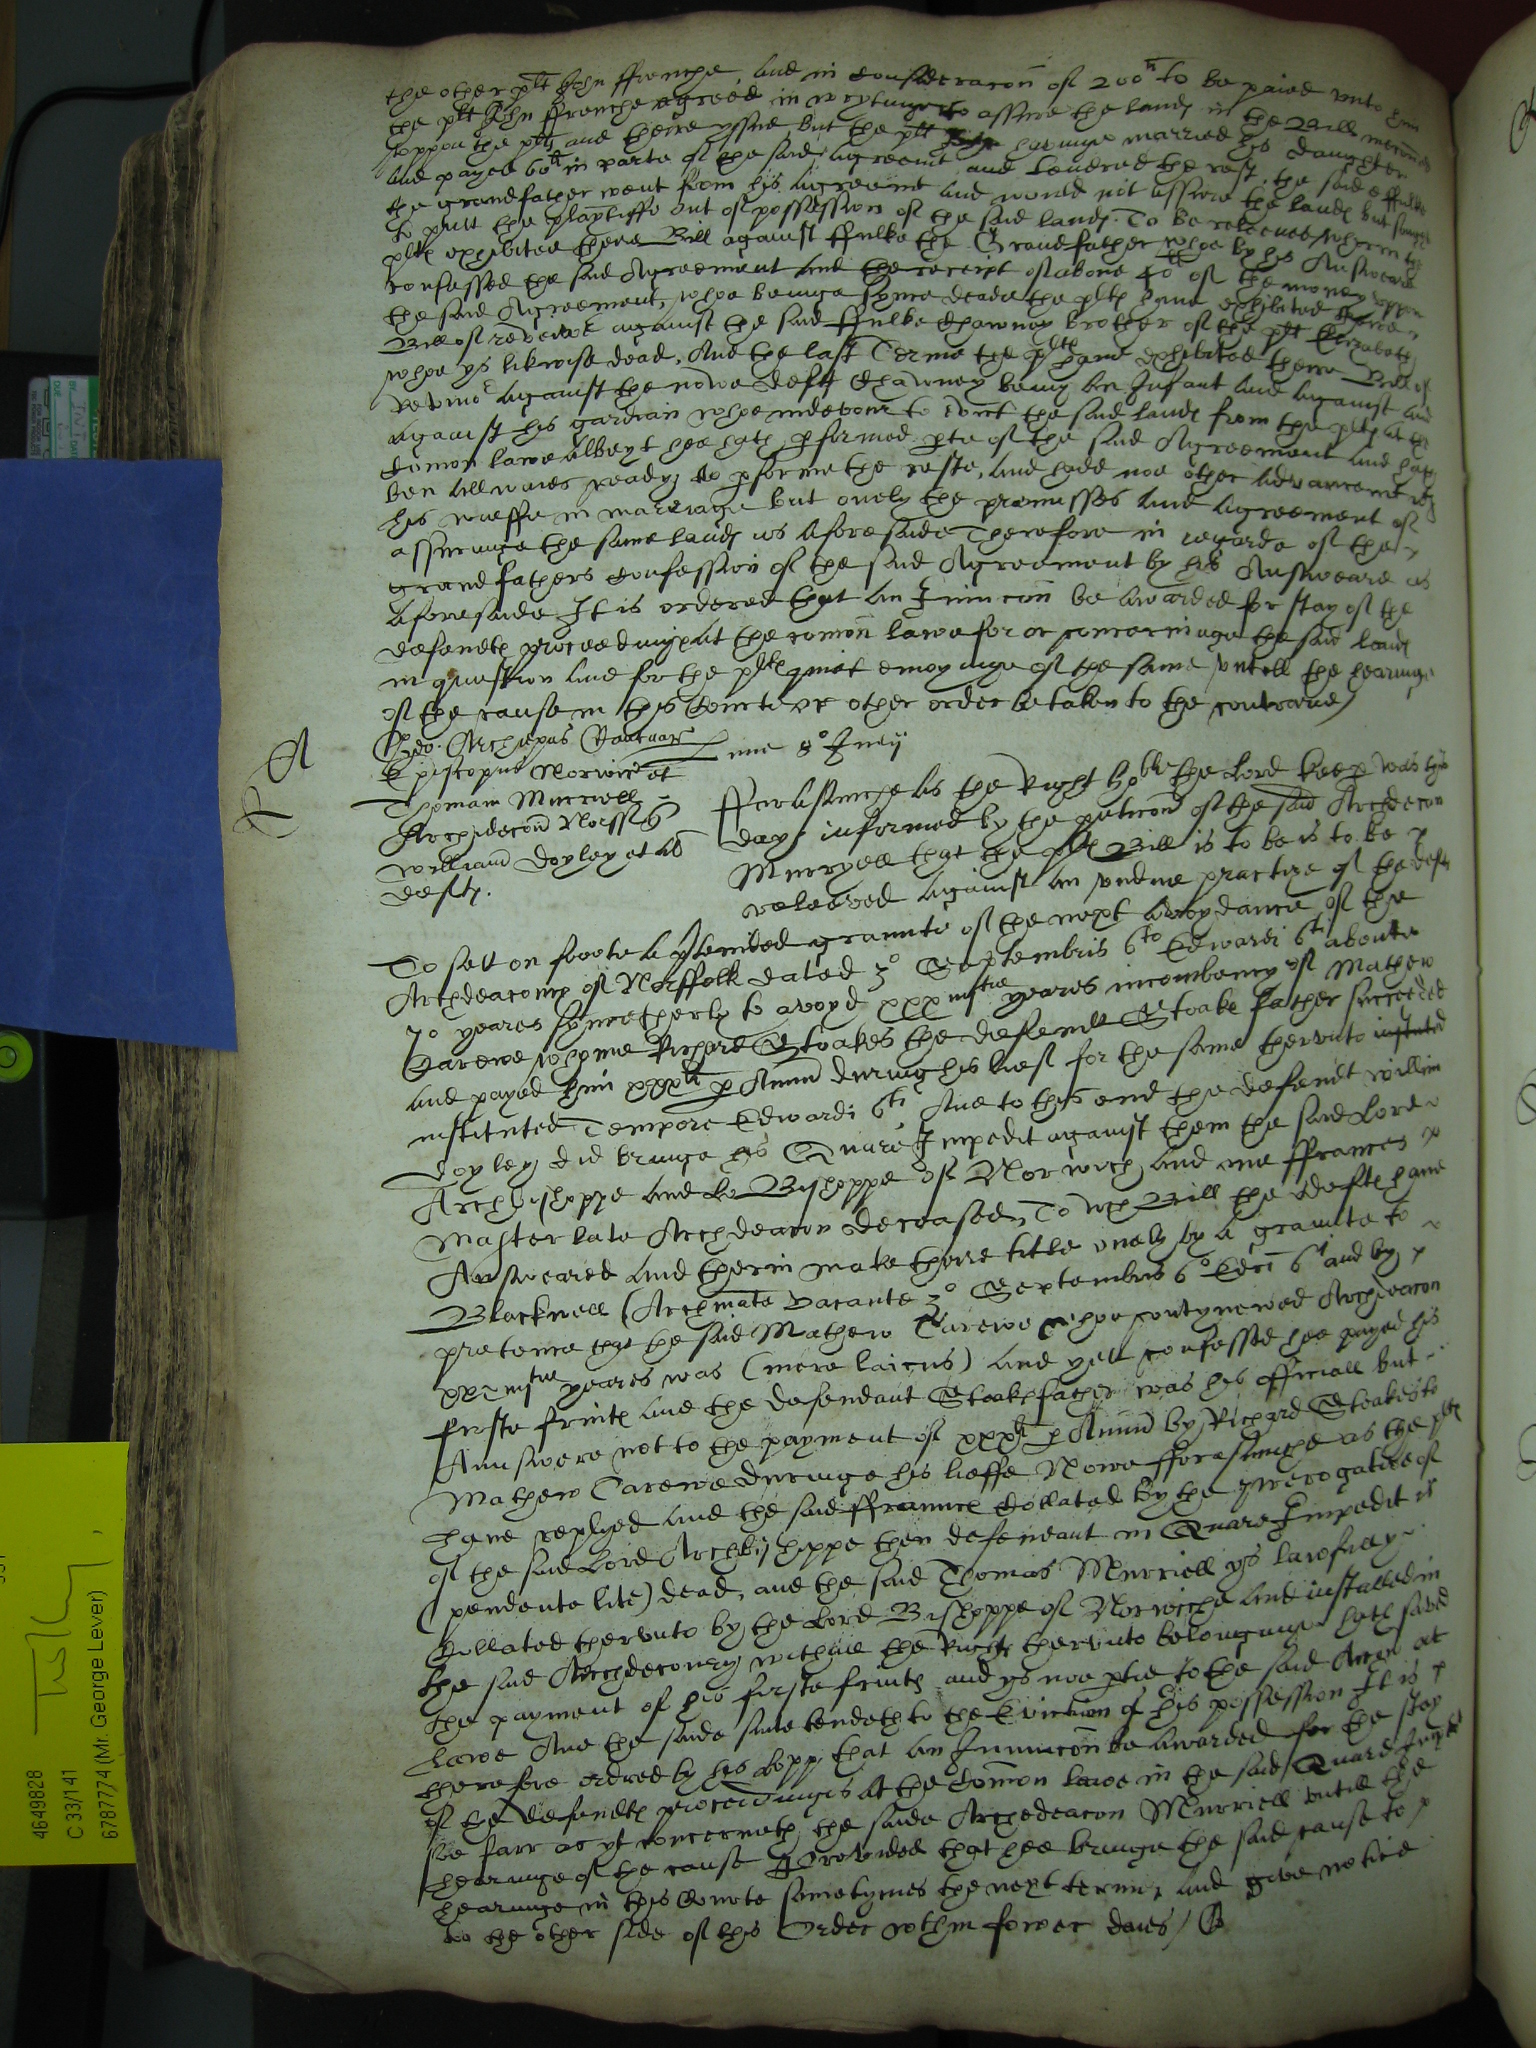 the other plt John ffrenche, and in consideracon of 200li to be paied unto him
the plt John ffrenche agreed in wrytinge to assure the landes in the Bill mencōned
uppon the pltes and theire yssue, but the plt John havinge married his daughter
and payed 60li in parte of the said agreemt and tendred the rest, the said ffulke
the grandfather went from his agreemt and would not assure the landes but sought
to putt the playntiffe out of possession of the said landes. To be releeved wherein the
pltes exhibited there Bill against ffulke the Grandfather whoe by his Answeare
confessed the said Agreement and the receipt of above 40li of the money uppon
the said Agreement, whoe beinge synce deade the pltes have exhibited there
Bill of revivor against the said ffulke Chawney brother of the plt Elizabeth
whoe ys likewise dead, And the last Terme the pltes have exhibited there Bill of
revivor against the nowe deft Chawney being an Infant and against and
against his gardian whoe indevour to evict the said landes from the pltes at the
comon lawe albeyt hee hath pformed pte of the said Agreement and hath
ben allwaies ready to pforme the reste, and hadd noe other advancemt with
his wieffe in marriage but onely the promisses and agreement of
assuringe the same landes as aforesaide Therefore in regarde of the
grandfathers confession of the said Agreement by his Answeare as
aforesaide It is ordered that an Iniuncon be awarded for stay of the
defendtes proceedinges at the comon lawe for or concerninge the said landes
in question and for the pltes quiet enioyinge of the same untill the hearinge
of the cause in this Courte or other order be taken to the contrarie
R A
Archiepus Cantuar
Episcopus Norwic et
Thomam Murriell
Archidecon Norff
William Doyley et al
deftes.
une 8o Iulij
fforasmuche as the Right hoble the Lord keep was this
day informed by the peticon of the said Archdecon
Murryell that the pltes Bill is to be is to be
releeved against an undue practize of the deftes
To sett on foote a ptended graunte of the next avoydance of the
Archdeaconry of Norffolk dated 3o Septembris 6to Edwardi 6ti aboute
70 yeares synce therby to avoyd xxx yeares incombency of Mathew
Carewe whome Richard Stoakes the defendt Stoakes father succeeded
and payed him xxxli p Annu during his lief for the same therunto instituted
instituted Tempore Edwardi 6ti And to this end the defendt William
Doyley did bringe his Quare Impedit against them the said Lord
Archbishoppe and Lo Bishoppe of Norwich and one ffrances
Master late Archdeacon deceased, To wch Bill the deftes have
Answeared and therin make there title onely by a graunte to
Blackwell (Archinate vacante 3o Septembris 6o Edri 6ti and by
pretence that he said Mathew Carewe whoe contynewed Archdeacon
yeares was (mere laicus) and yett confessed hee payed his
firste fruites and the defendant Stoakes father was his officiall but
Annswere not to the payment of xxxli p Annu by Richard Stoakes to
Mathew Carewe duringe his lieffe Nowe fforasmuche as the pltes
have replyed and the said ffraunces Collated by the prerogative of
of the said Lord Archbishoppe then defendant in Quare Impedit is
(pendente lite) dead, and the said Thomas Murriell ys lawfully
Collated therunto by the Lord Bishoppe of Norwiche and installed in
the said Archdeconry with all the Rightes therunto belonginge hath
the payment of his firste fruites and ys noe ptie to the said Accon at
Lawe And the saide suite tendeth to the Eviction of his possession It is
therefore ordred by his Lopp, that an Iniuncon be awarded for the stay
of the defendtes proceedinges at the Comon Lawe in the said Quare Impedit
soe farr as yt concerneth the saide Archedeacon Murriell untill the
hearinge of the cause Provided that hee bringe the said cause to
hearinge in this Courte sometymes the next terme, and give notice
to the other side of this Order wthin fower daies
4649828
C 33/141
6787774 (Mr. George Lever)